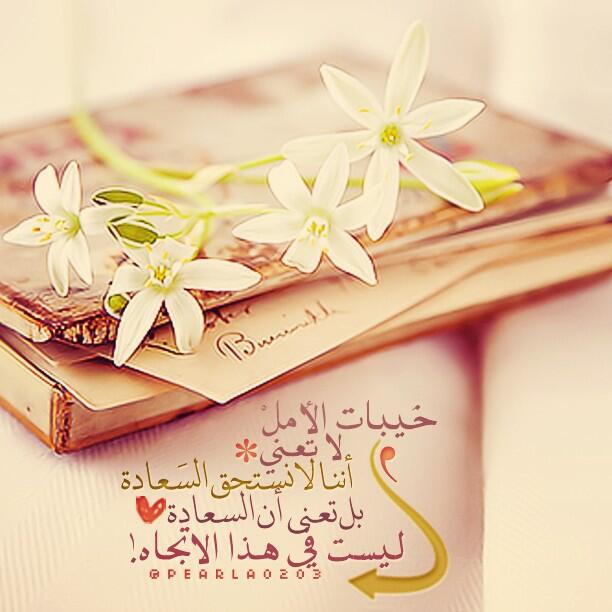 خيبات الأملْ
لا تعني *
أننا لا نستحق السَعادة
بل تعني أن السعادة
ليست في هذا الاتجاه!
@PEARLA0203